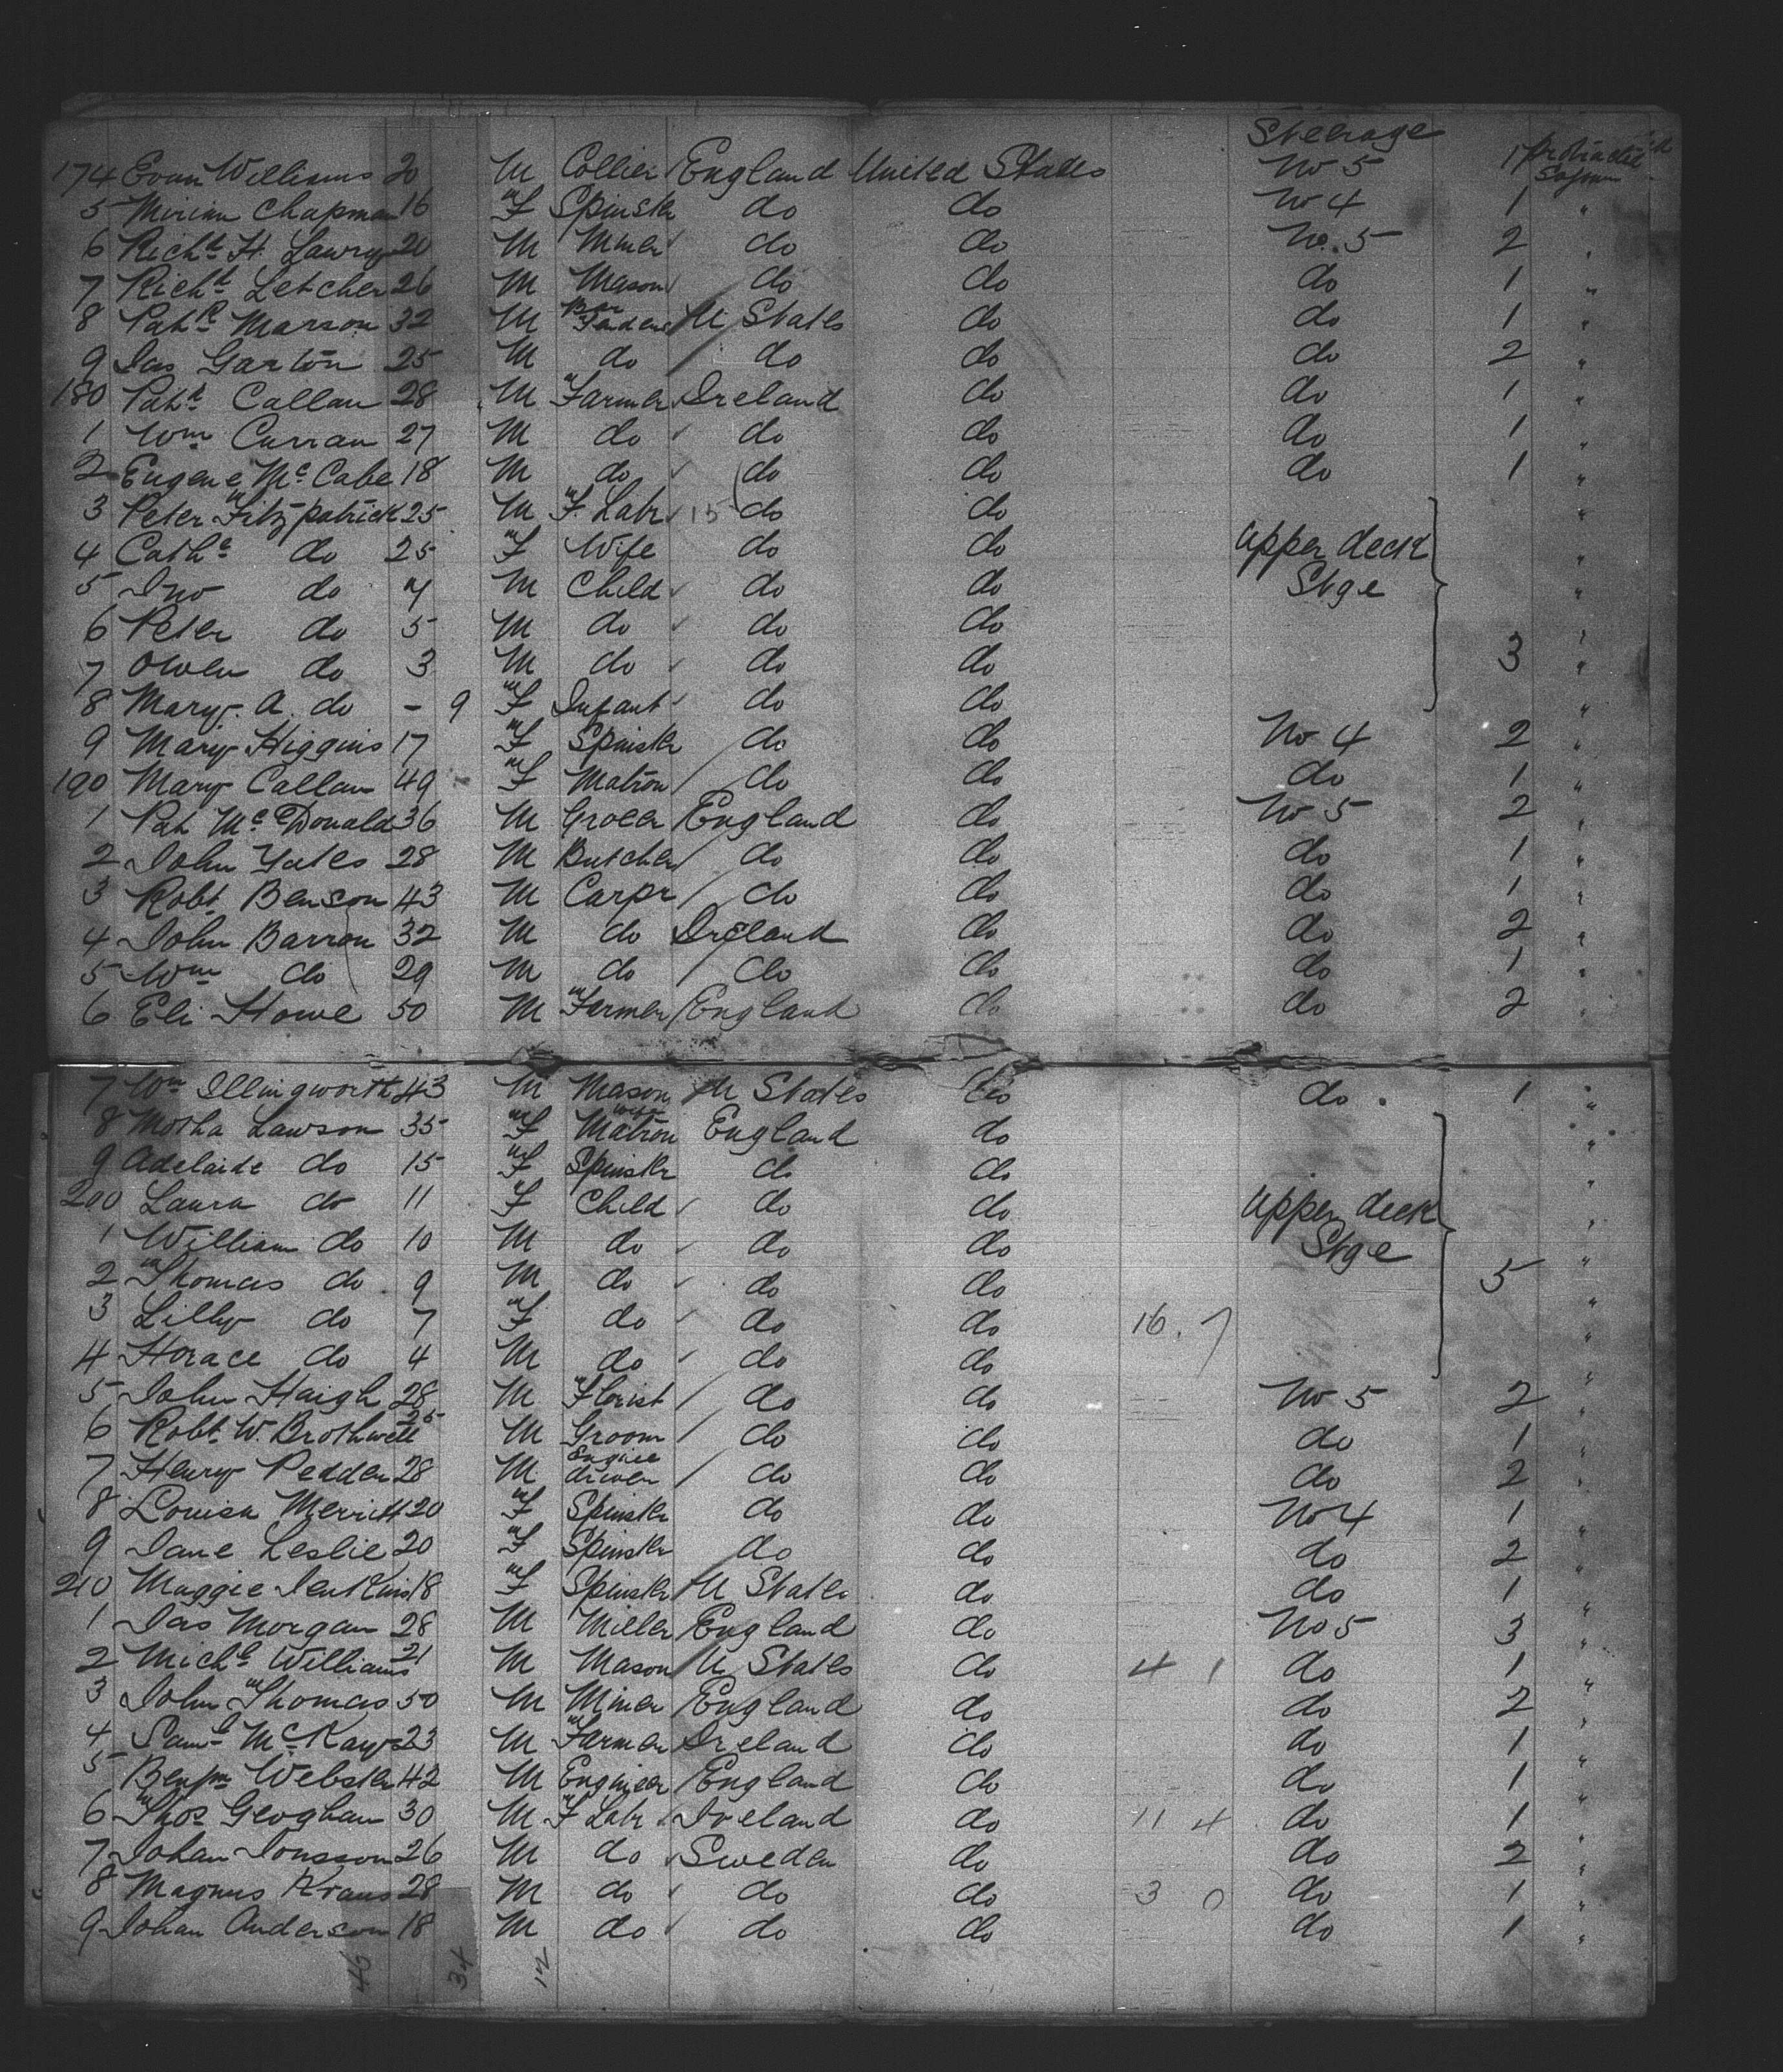 Steerage
174 Evan Williams 20 M Collier England United States No 5 1 protracted Sojourn
5 Miriam Chapman 16 F Spinstr do do No 4 1 "
6 Richd H. Lawry 20 M Miner do do No. 5 2 "
7 Richd Letcher 26 M Mason do do do 1 "
8 Patk Marson 32 M Bar Tender U States do do 1 "
9 Jas Garton 25 M do do do do 2 "
180 Patk Callan 28 M Farmer Ireland do do 1 "
1 Wm Curran 27 M do do do do 1 "
2 Eugene McCabe 18 M do do do do 1 "
3 Peter Fitzpatrick 25 M F. Labr 15 do do "
4 Cathe do 25 F Wife do do Upper deck "
5 Jno do 7 M Child do do Stge "
6 Peter do 5 M do do do "
7 Owen do 3 M do do do 3 "
8 Mary. A. do - 9 F Infant do do "
9 Mary Higgins 17 F Spinstr do do No 4 2 "
190 Mary Callan 49 F Matron do do do 1 "
1 Pat McDonald 36 M Grocer England do No 5 2 "
2 John Yates 28 M Butcher do do do 1 "
3 Robt Benson 43 M Carpr do do do 1 "
4 John Barron 32 M do Ireland do do 2 "
5 Wm do 29 M do do do do 1 "
6 Eli Howe 50 M Farmer England do do 2 "
7 Wm Illingworth 43 M Mason U States do do. 1 "
8 Motha Lawson 35 F Matron wife England do "
9 Adelaide do 15 F Spinstr do do "
200 Laura do 11 F Child do do Upper deck "
1 William do 10 M do do do Stge "
2 Thomas do 9 M do do do 5 "
3 Lilly do 7 F do do do 16. 7 "
4 Horace do 4 M do do do "
5 John Haigh 28 M Florist do do No 5 2 "
6 Robt W. Brothwell 25 M Groom do do do 1 "
7 Henry Pedder 28 M Engine driver do do do 2 "
8 Louisa Merritt 20 F Spinstr do do No 4 1 "
9 Jane Leslie 20 F Spinstr do do do 2 "
210 Maggie Jenkins 18 F Spinstr U States do do 1 "
1 Jas Morgan 28 M Miller England do No 5 3 "
2 Michl Williams 21 M Mason U States do 4 1 do 1 "
3 John Thomas 50 M Miner England do do 2 "
4 Saml McKay 23 M Farmer Ireland do do 1 "
5 Benjm Webster 42 M Engineer England do do 1 "
6 Thos Geoghan 30 M F Labr Ireland do 11 4 do 1 "
7 Johan Jonsson 26 M do Sweden do do 2 "
8 Magnus Kraus 28 M do do do 3 0 do 1 "
9 Johan Anderson 18 M do do do do 1 "
34 12